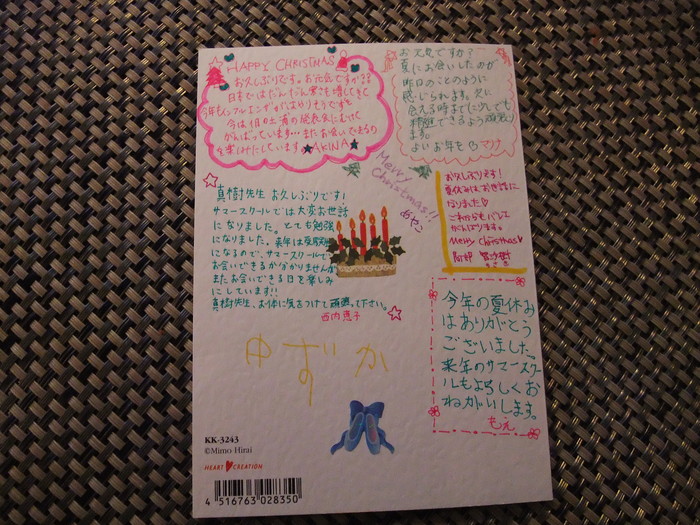 HAPPY CHRISTMAS
お久しぶりです。お元気ですか?
日本ではだんだん寒さも増してきて
今年もインフルエンザがはやりそうです
今は1月の土浦の発表会にむけて
がんばっています…またお会いできるの
楽しみにしています。AKINA
お元気ですか?
夏にお会いしたのが
昨日のことのように
感じられます。次に
会える時までに少しでも
成長できるよう頑張り
ます。
よいお年を マリナ
Merry
Christmas!!
あやこ
お久しぶりです!
夏休みはお世話に
なりました♡
これからもバレエ
がんばります。
Merry Christmas♡
阿部
真樹先生 お久しぶりです!
サマースクールでは大変お世話
になりました。とても勉強
になりました。来年は受験
になるので、サマースクールで
お会いできるか分かりませんが
またお会いできる日を楽しみ
にしています!!
真樹先生、お体に気をつけて頑張って下さい。
西内恵子
今年の夏休み
はありがとう
ございました。
来年のサマースクー
ルもよろしくお
ねがいします。
もえ
ゆずか
KK-3243
©Mimo Hirai
HEART CREATION
4 516763 028350